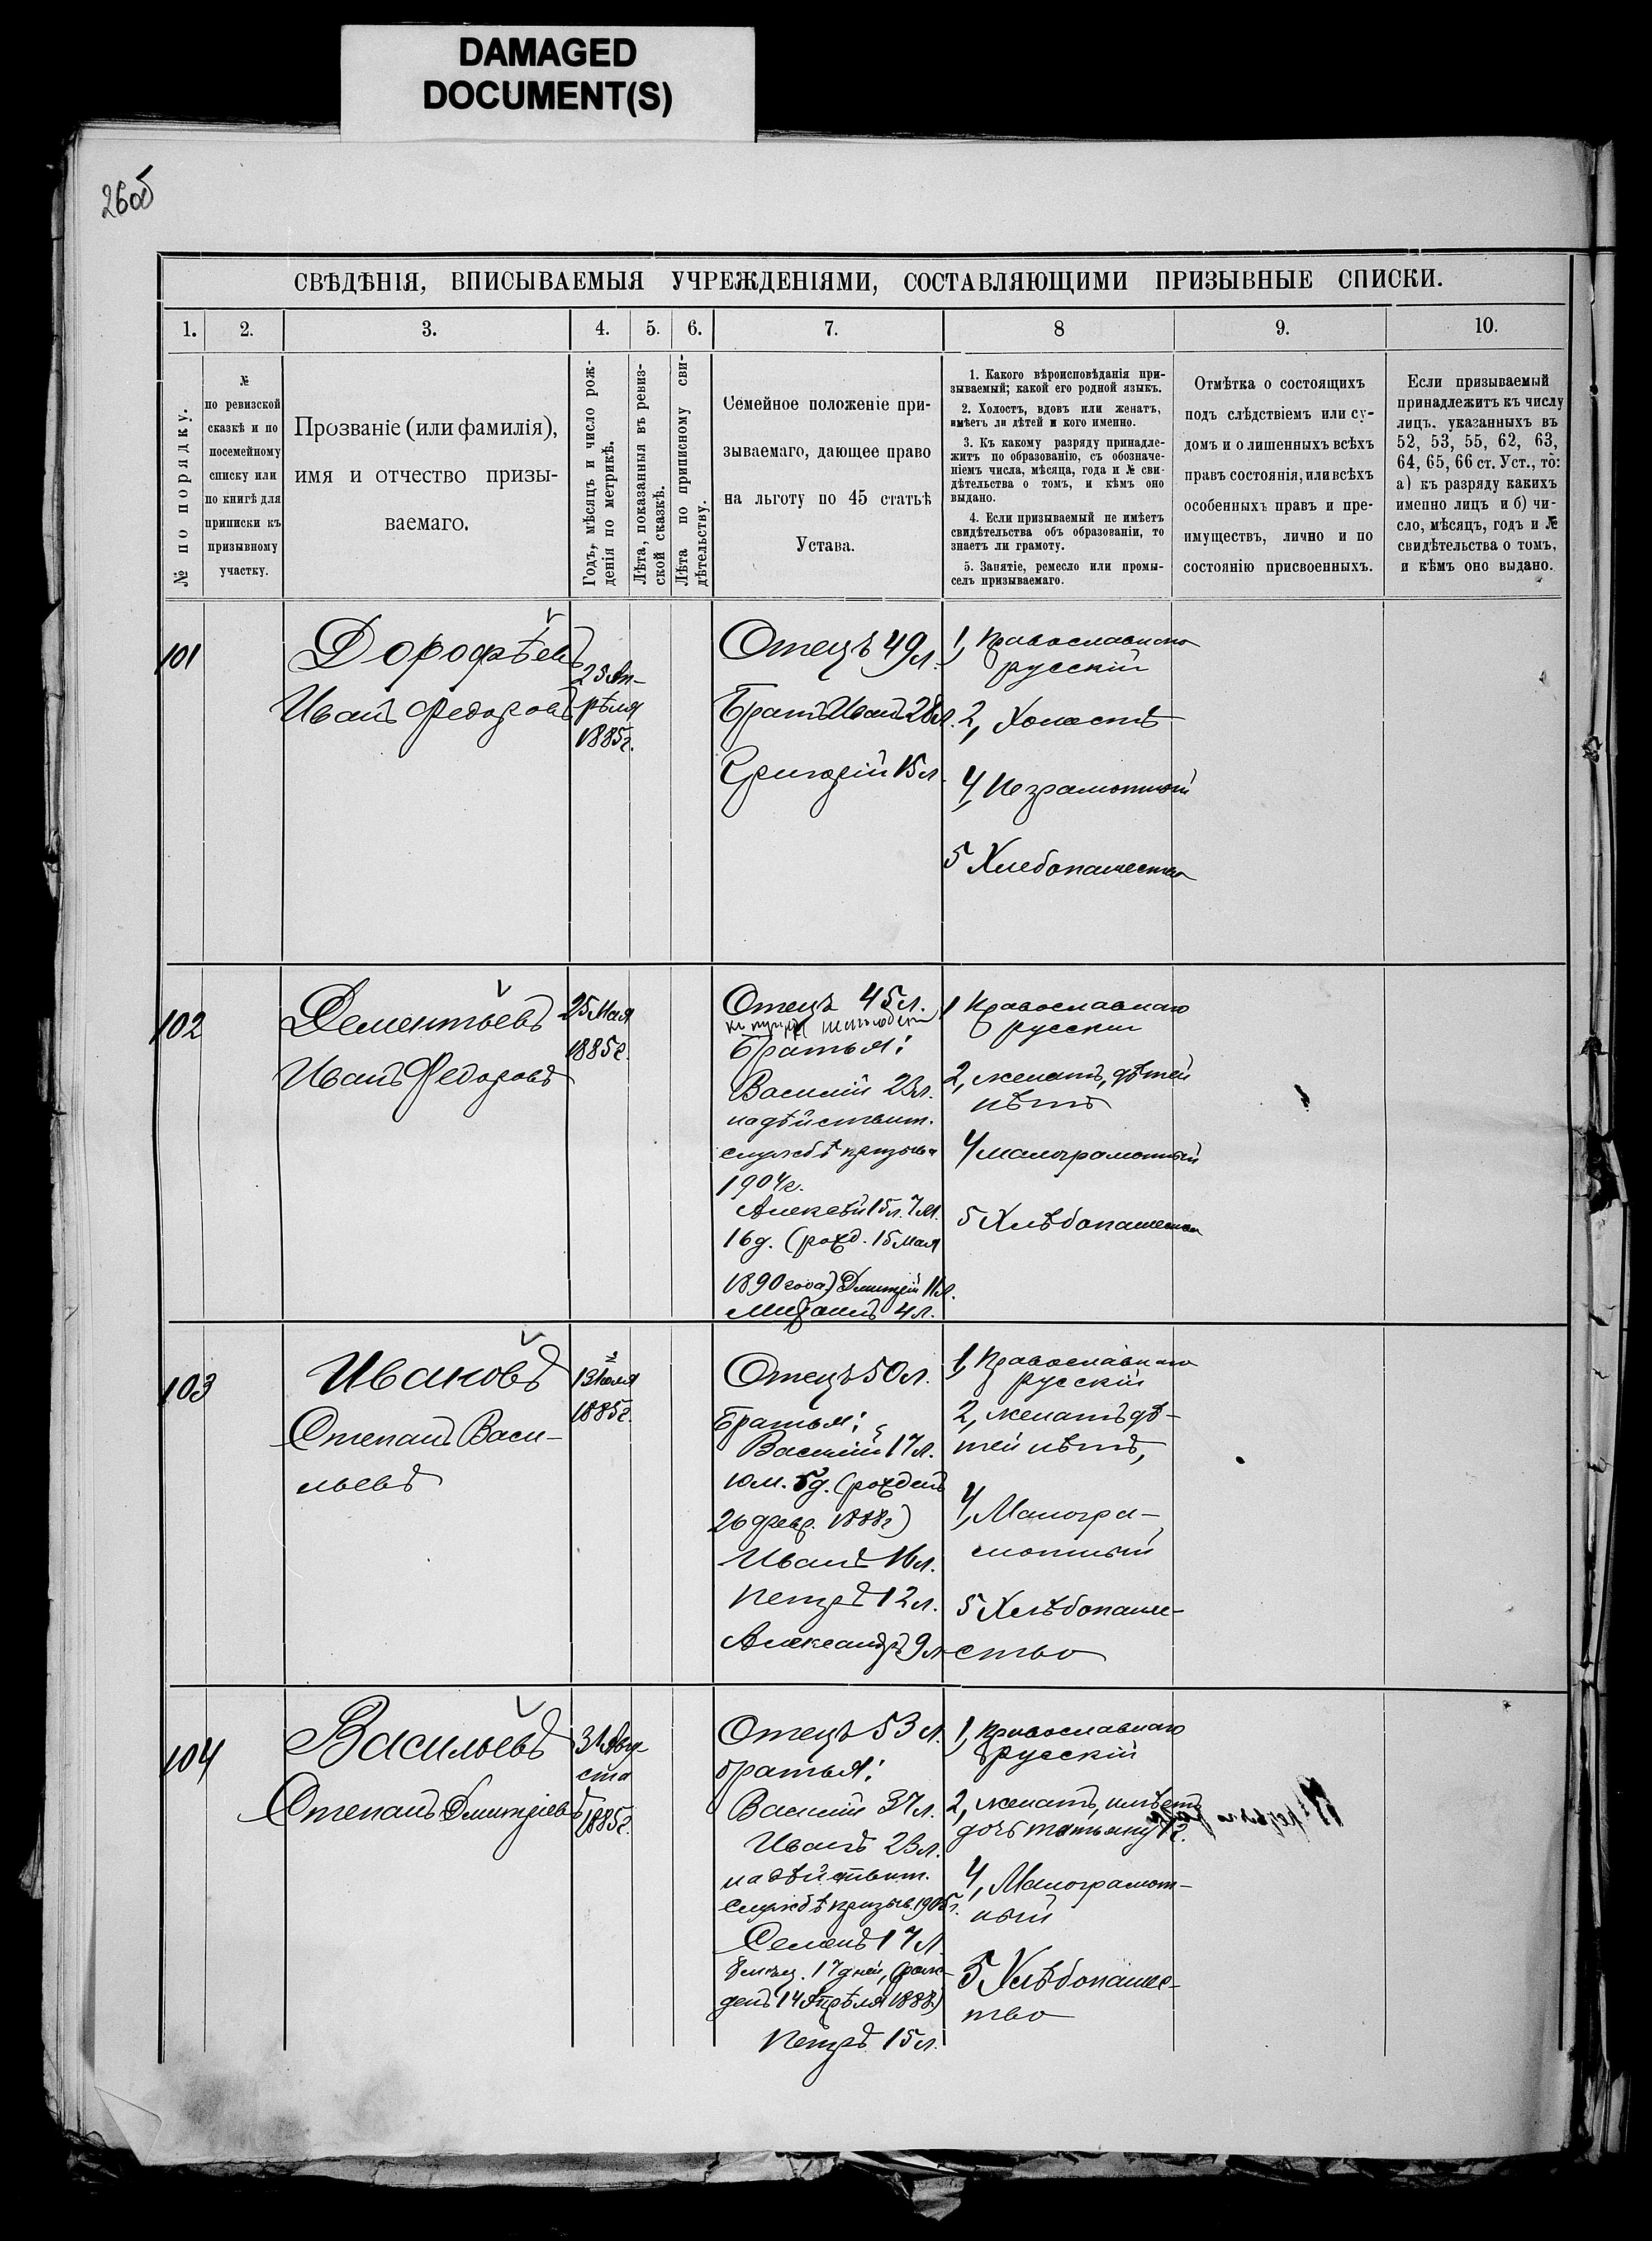 DAMAGED
DOCUMENT(S)
26об
СВѢДѢНІЯ, ВПИСЫВАЕМЫЯ УЧРЕЖДЕНІЯМИ, СОСТАВЛЯЮЩИМИ ПРИЗЫВНЫЕ СПИСКИ.
1. 2. 3. 4. 5. 6. 7. 8 9. 10.
№ по порядку.
№
по ревизской
сказкѣ и по
посемейному
списку или
по книгѣ для
приписки къ
призывному
участку.
Прозваніе (или фамилія),
имя и отчество призы-
ваемаго.
Годъ, мѣсяцъ и число рож-
денія по метрикѣ.
Лѣта, показанныя въ ревиз-
ской сказкѣ.
Лѣта по приписному сви-
дѣтельству.
Семейное положеніе при-
зываемаго, дающее право
на льготу по 45 статьѣ
Устава.
1. Какого вѣроисповѣданія при-
зываемый; какой его родной языкъ.
2. Холостъ, вдовъ или женатъ,
имѣетъ ли дѣтей и кого именно.
3. Къ какому разряду принадле-
житъ по образованію, съ обозначе-
ніемъ числа, мѣсяца, года и № сви-
дѣтельства о томъ, и кѣмъ оно
выдано.
4. Если призываемый не имѣетъ
свидѣтельства объ образованіи, то
знаетъ ли грамоту.
5. Занятіе, ремесло или промы-
селъ призываемаго.
Отмѣтка о состоящихъ
подъ слѣдствіемъ или су-
домъ и о лишенныхъ всѣхъ
правъ состоянія, или всѣхъ
особенныхъ правъ и пре-
имуществъ, лично и по
состоянію присвоенныхъ.
Если призываемый
принадлежитъ къ числу
лицъ, указанныхъ въ
52, 53, 55, 62, 63,
64, 65, 66 ст. Уст., то:
а) къ разряду какихъ
именно лицъ и б) чи-
сло, мѣсяцъ, годъ и №
свидѣтельства о томъ,
и кѣмъ оно выдано.
101
Дорофѣевъ
Иванъ Федоровъ
23 Ап-
рѣля
1885г.
Отецъ 49 л.
Братъ Иванъ 28 л.
Григорій 15 л.
1, Православнаго
русскій
2, Холостъ
4, Неграмотный
5 Хлебопашество
102
Дементьевъ
Иванъ Федоровъ
25 Мая
1885г.
Отецъ 45 л.
Братья:
Василій 23 л.
на дѣйствит.
службѣ призыва
1904г.
Алексѣй 15 л. 7 м.
16 д. (рожд. 15 Мая
1890 года) Дмитрій 11 л.
Михаилъ 4 л.
1 Православнаго
русскій
2, женатъ, дѣтей
нѣтъ
4 малограмотный
5 Хлѣбопашество
103
Ивановъ
Степанъ Васи-
льевъ
13 Іюля
1885г.
Отецъ 50 л.
Братья:
Василій 17 л.
10 м. 5 д. (рожденъ
26 февр. 1888г)
Иванъ 16 л.
Петръ 12 л.
Александръ 9 л.
1, Православнаго
русскій
2, женатъ дѣ-
тей нѣтъ,
4, Малогра-
мотный
5 Хлѣбопаше-
ство
104
Васильевъ
Степанъ Дмитріевъ
31 Авгу-
ста
1885г.
Отецъ 53 л.
братья:
Василій 37 л.
Иванъ 23 л.
на дѣйствит.
службѣ призыв. 1905 г.
Семенъ 17 л.
8 мѣсяц. 17 дней, (рож-
денъ 14 Апрѣля 1888)
Петръ 15 л.
1, Православнаго
русскій
2, женатъ, имѣетъ
дочь Татьяну 1 г.
4, Малограмот-
ный
5 Хлѣбопаше-
тво